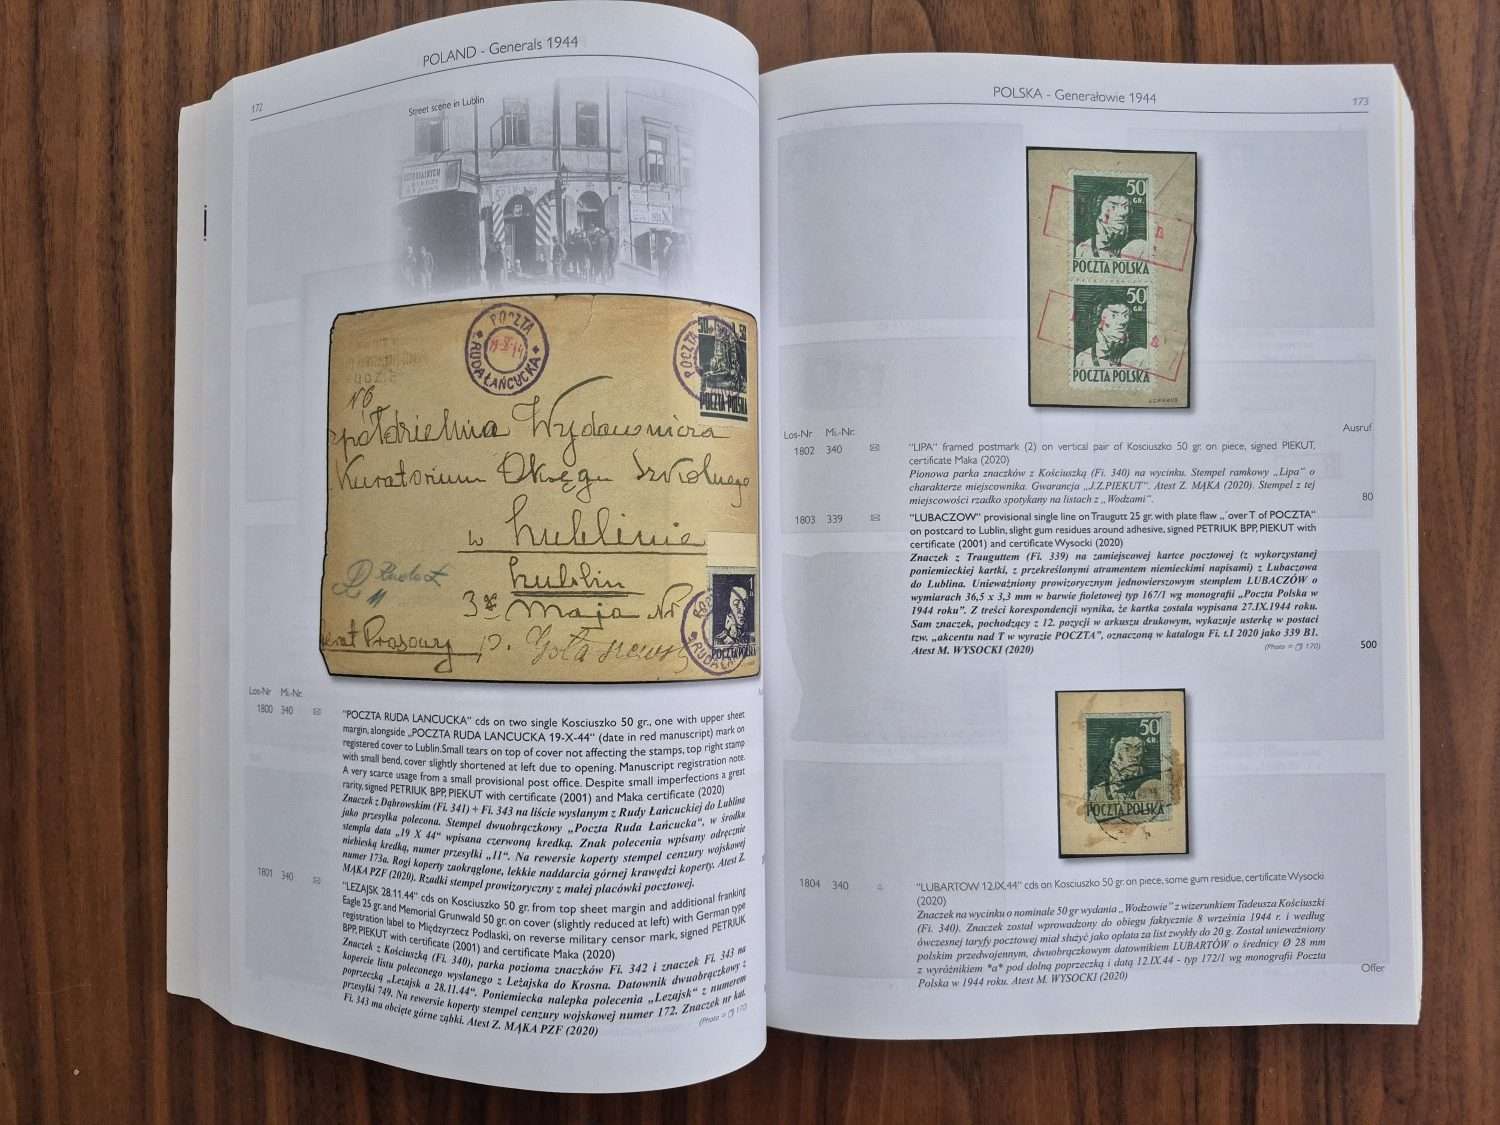 172
POLAND - Generals 1944
Street scene in Lublin
POCZTA
RUDA ŁAŃCUCKA
50 50
POCZTA POLSKA
Wydawnicza
Kuratorium Okręgu Szkolnego
w Lublinie
Lublin
3go Maja Nr
Prasowy
POCZTA POLSKA
Los-Nr Mi.-Nr.
1800 340 "POCZTA RUDA LANCUCKA" cds on two single Kosciuszko 50 gr., one with upper sheet
margin, alongside „POCZTA RUDA LANCUCKA 19-X-44" (date in red manuscript) mark on
registered cover to Lublin.Small tears on top of cover not affecting the stamps, top right stamp
with small bend, cover slightly shortened at left due to opening. Manuscript registration note.
A very scarce usage from a small provisional post office. Despite small imperfections a great
rarity, signed PETRIUK BPP, PIEKUT with certificate (2001) and Maka certificate (2020)
Znaczek z Dąbrowskim (Fi. 341) + Fi. 343 na liście wysłanym z Rudy Łańcuckiej do Lublina
jako przesyłka polecona. Stempel dwuobrączkowy „Poczta Ruda Łańcucka", w środku
stempla data „19 X 44" wpisana czerwoną kredką. Znak polecenia wpisany odręcznie
niebieską kredką, numer przesyłki „11". Na rewersie koperty stempel cenzury wojskowej
numer 173a. Rogi koperty zaokrąglone, lekkie naddarcia górnej krawędzi koperty. Atest Z.
MĄKA PZF (2020). Rzadki stempel prowizoryczny z małej placówki pocztowej.
1801 340 "LEZAJSK 28.11.44" cds on Kosciuszko 50 gr. from top sheet margin and additional franking
Eagle 25 gr. and Memorial Grunwald 50 gr. on cover (slightly reduced at left) with German type
registration label to Międzyrzecz Podlaski, on reverse military censor mark, signed PETRIUK
BPP, PIEKUT with certificate (2001) and certificate Maka (2020)
Znaczek z Kościuszką (Fi. 340), parka pozioma znaczków Fi. 342 i znaczek Fi. 343 na
kopercie listu poleconego wysłanego z Leżajska do Krosna. Datownik dwuobrączkowy z
poprzeczką „Leżajsk a 28.11.44". Poniemiecka nalepka polecenia „Lezajsk" z numerem
przesyłki 749. Na rewersie koperty stempel cenzury wojskowej numer 172. Znaczek nr kat.
Fi. 343 ma obcięte górne ząbki. Atest Z. MĄKA PZF (2020)
(Photo = 170)
POLSKA - Generałowie 1944
173
50
GR.
POCZTA POLSKA
50
GR.
POCZTA POLSKA
Los-Nr Mi.-Nr. Ausruf
1802 340 "LIPA" framed postmark (2) on vertical pair of Kosciuszko 50 gr. on piece, signed PIEKUT,
certificate Maka (2020)
Pionowa parka znaczków z Kościuszką (Fi. 340) na wycinku. Stempel ramkowy „Lipa" o
charakterze miejscownika. Gwarancja „J.Z.PIEKUT". Atest Z. MĄKA (2020). Stempel z tej
miejscowości rzadko spotykany na listach z „Wodzami". 80
1803 339 "LUBACZOW" provisional single line on Traugutt 25 gr. with plate flaw „´over T of POCZTA"
on postcard to Lublin, slight gum residues around adhesive, signed PETRIUK BPP, PIEKUT with
certificate (2001) and certificate Wysocki (2020)
Znaczek z Trauguttem (Fi. 339) na zamiejscowej kartce pocztowej (z wykorzystanej
poniemieckiej kartki, z przekreślonymi atramentem niemieckimi napisami) z Lubaczowa
do Lublina. Unieważniony prowizorycznym jednowierszowym stemplem LUBACZÓW o
wymiarach 36,5 x 3,3 mm w barwie fioletowej typ 167/1 wg monografii „Poczta Polska w
1944 roku". Z treści korespondencji wynika, że kartka została wypisana 27.IX.1944 roku.
Sam znaczek, pochodzący z 12. pozycji w arkuszu drukowym, wykazuje usterkę w postaci
tzw. „akcentu nad T w wyrazie POCZTA", oznaczoną w katalogu Fi. t.1 2020 jako 339 B1.
Atest M. WYSOCKI (2020) (Photo = 170) 500
50
GR.
POCZTA POLSKA
1804 340 "LUBARTOW 12.IX.44" cds on Kosciuszko 50 gr. on piece, some gum residue, certificate Wysocki
(2020)
Znaczek na wycinku o nominale 50 gr wydania „Wodzowie" z wizerunkiem Tadeusza Kościuszki
(Fi. 340). Znaczek został wprowadzony do obiegu faktycznie 8 września 1944 r. i według
ówczesnej taryfy pocztowej miał służyć jako opłata za list zwykły do 20 g. Został unieważniony
polskim przedwojennym, dwuobrączkowym datownikiem LUBARTÓW o średnicy Ø 28 mm
z wyróżnikiem *a* pod dolną poprzeczką i datą 12.IX.44 - typ 172/1 wg monografii Poczta
Polska w 1944 roku. Atest M. WYSOCKI (2020) Offer